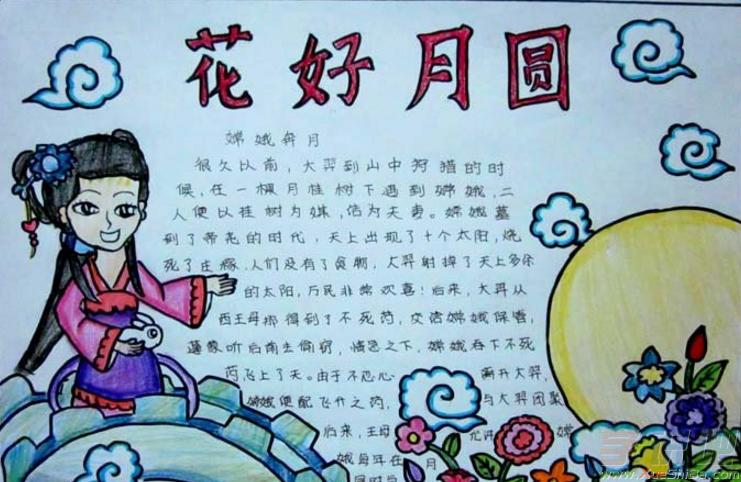 花好月圆
嫦娥奔月
很久以前，大羿到山中狩猎的时
候，在一棵月桂树下遇到嫦娥，二
人便以桂树为媒，结为夫妻。嫦娥
到了帝尧的时代，天上出现了十个太阳，烧
死了庄稼，人们没有了食物，大羿射掉了天上多余
的太阳，万民非常欢喜！后来，大羿从
西王母那得到了不死药，交给嫦娥保管，
蓬蒙听后前去偷窃，情急之下，嫦娥吞下不死
药飞上了天。由于不忍心 离开大羿，
嫦娥便 飞升之药， 与大羿团聚
后来，王母 允许 嫦
娥每年在 月
www.XueShiBa.com